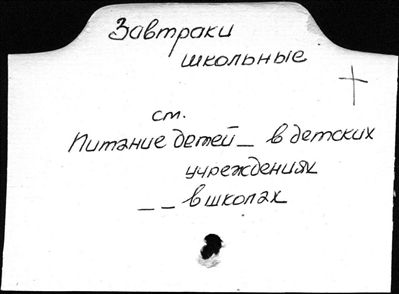 Завтраки
школьные
см.
Питание детей _ в детских
учреждениях
_ _ в школах